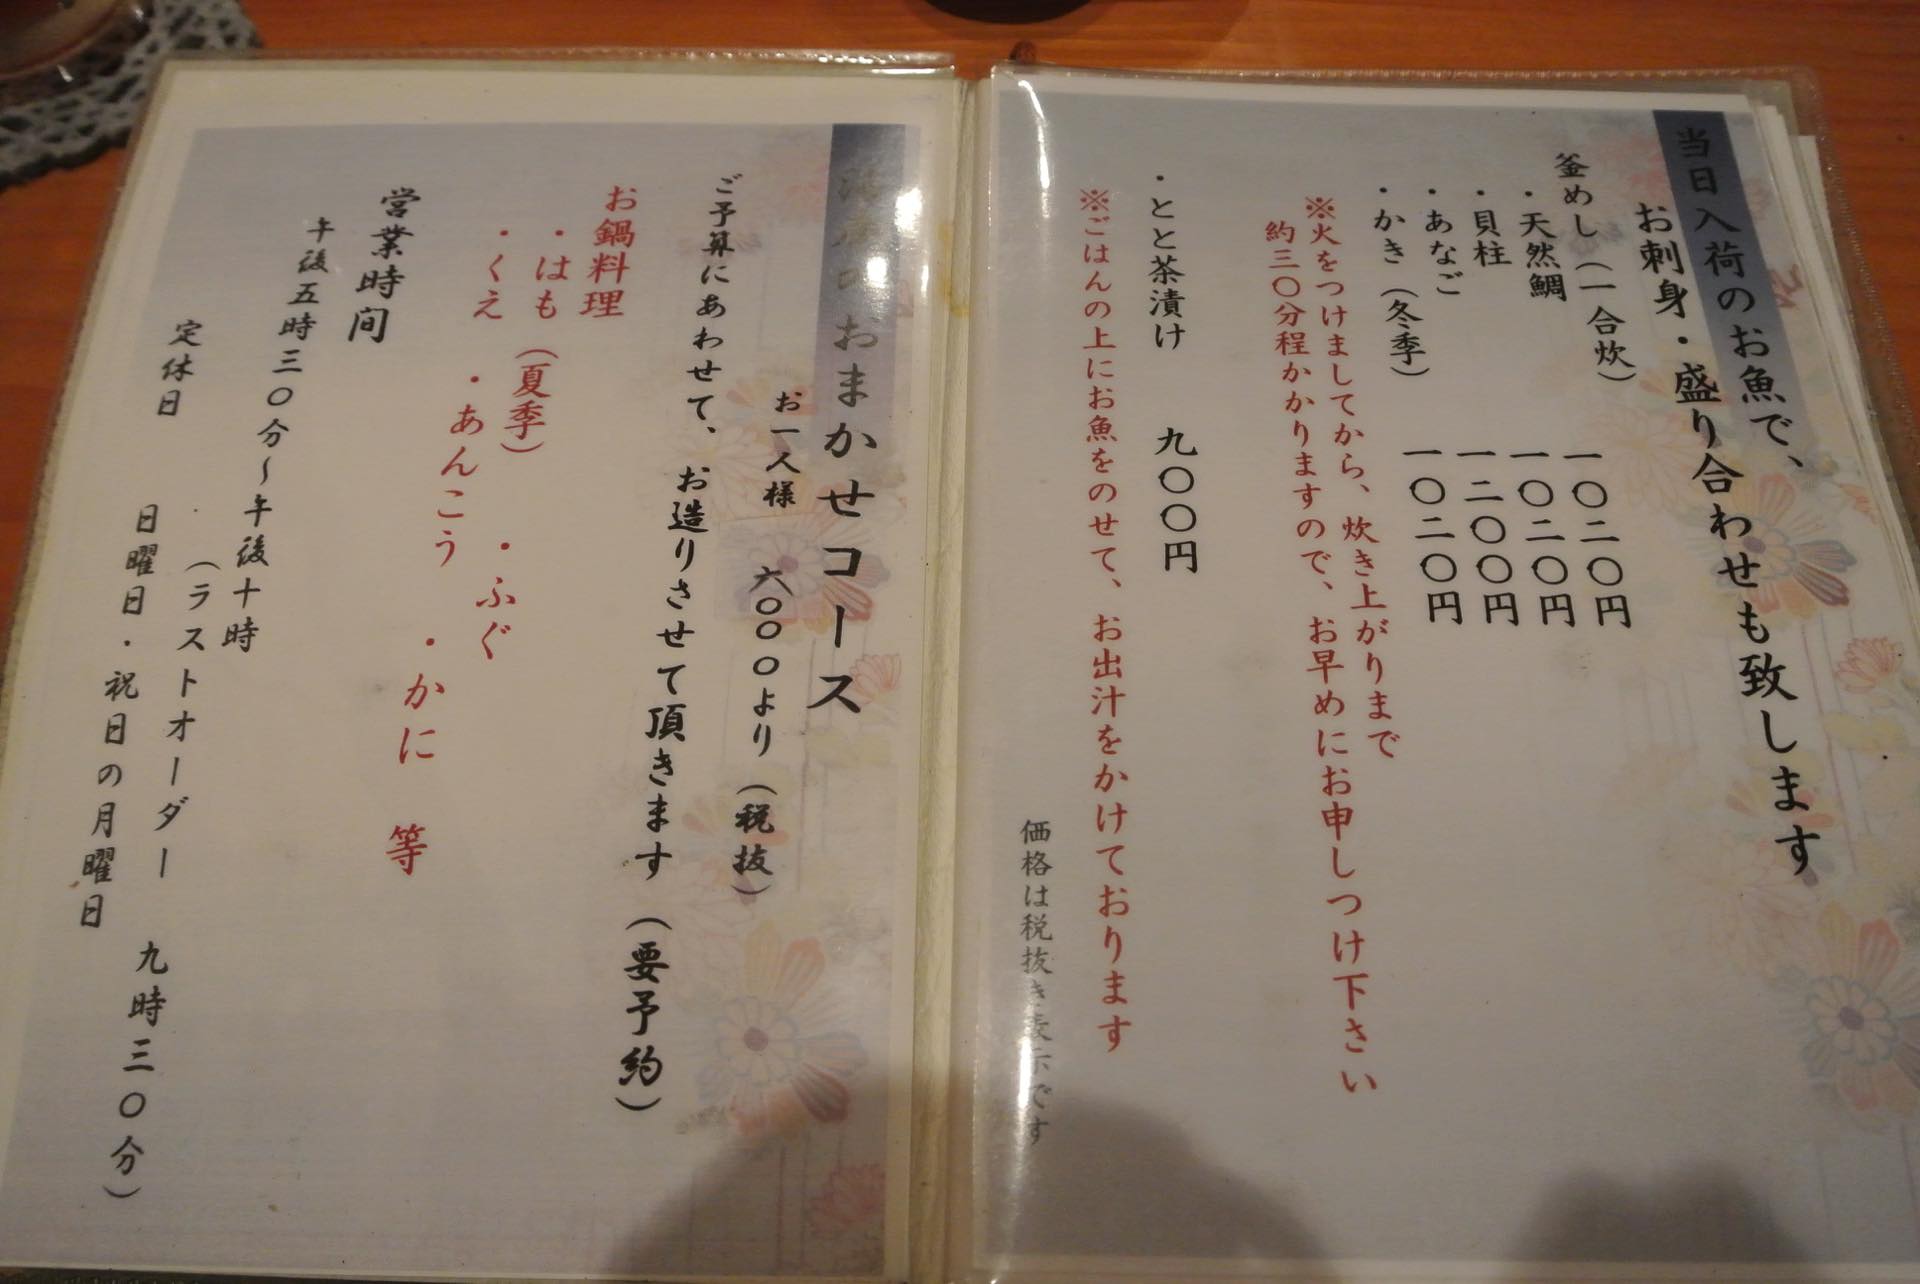 当日入荷のお魚で、
お刺身・盛り合わせも致します
釜めし（一合炊）
・天然鯛 一〇二〇円
・貝柱 一〇二〇円
・あなご 一二〇〇円
・かき（冬季） 一〇二〇円
※火をつけましてから、炊き上がりまで
約三〇分程かかりますので、お早めにお申しつけ下さい
・とと茶漬け 九〇〇円
※ごはんの上にお魚をのせて、お出汁をかけております
価格は税抜き表示です
おまかせコース
お一人様 六〇〇〇より（税抜）
ご予算にあわせて、お造りさせて頂きます（要予約）
お鍋料理
・はも（夏季） ・ふぐ
・くえ ・あんこう ・かに 等
営業時間
午後五時三〇分～午後十時
（ラストオーダー 九時三〇分）
定休日 日曜日・祝日の月曜日